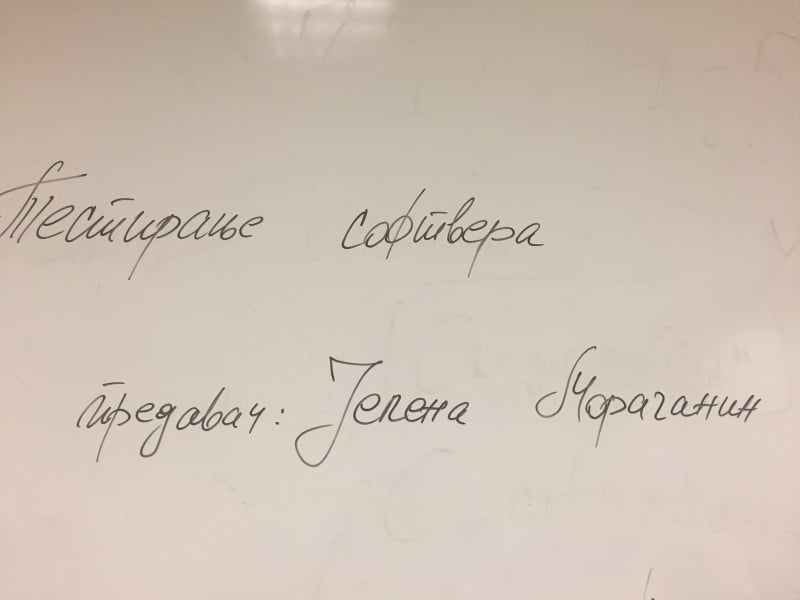 Тестирање софтвера
предавач: Јелена Морачанин